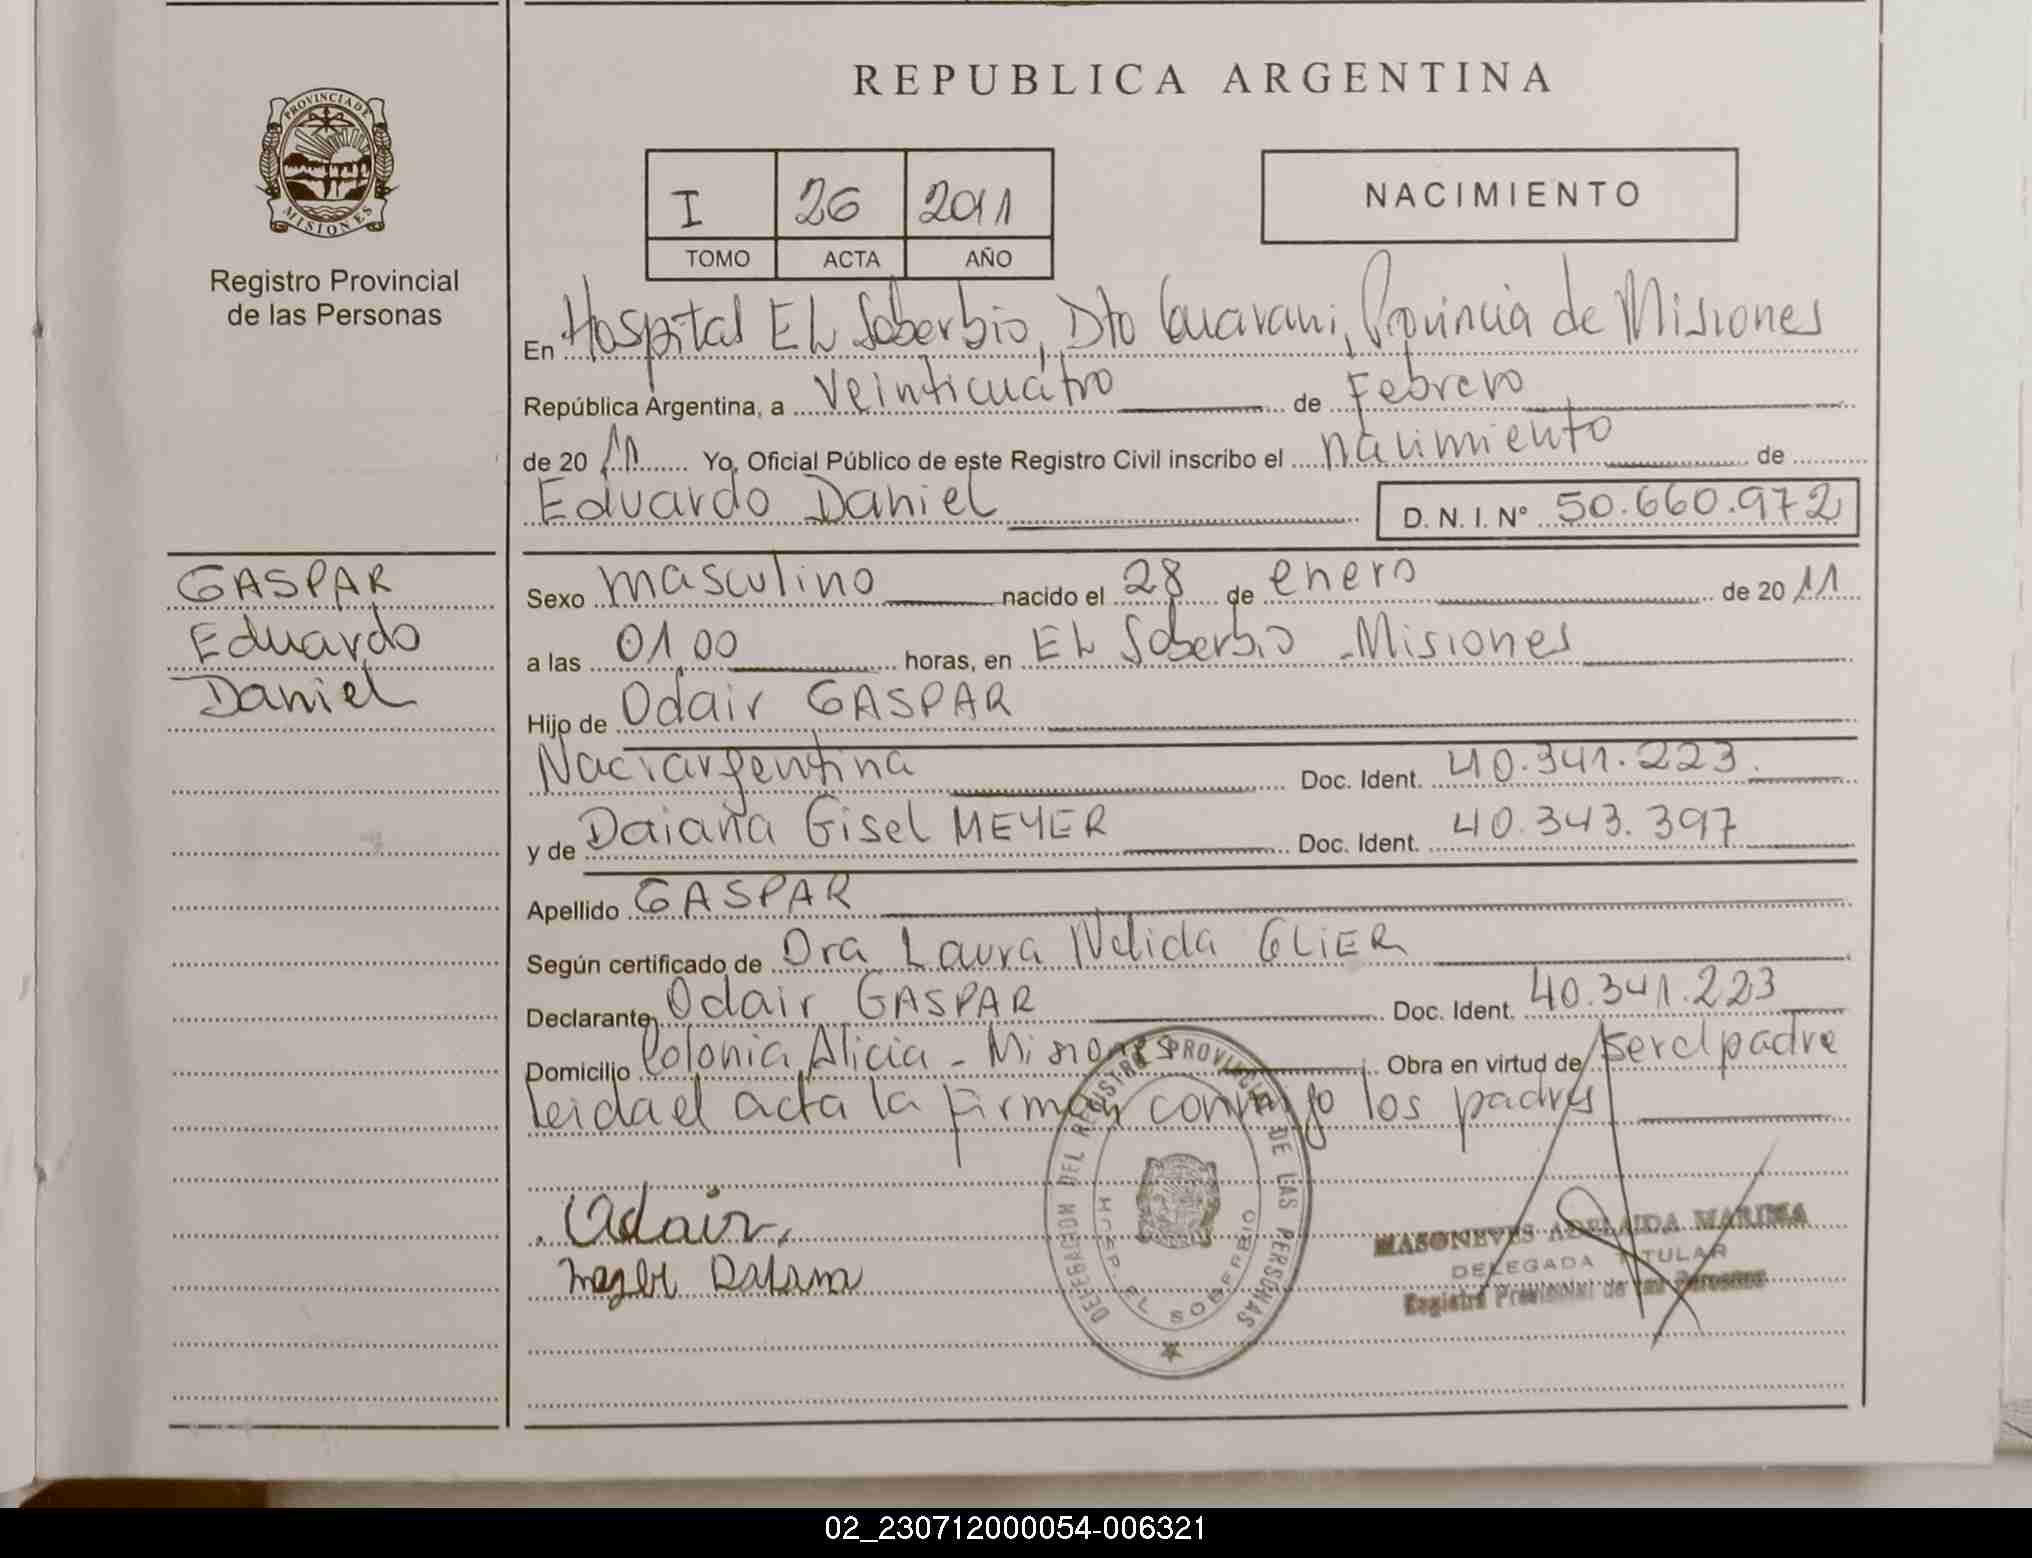 PROVINCIA DE
MISIONES
Registro Provincial
de las Personas
GASPAR
Eduardo
Daniel
REPUBLICA ARGENTINA
I 26 2011
TOMO ACTA AÑO
NACIMIENTO
En Hospital EL Soberbio, Dto Guarani, Provincia de Misiones
República Argentina, a Veinticuatro de Febrero
de 20 11 Yo, Oficial Público de este Registro Civil inscribo el nacimiento de
Eduardo Daniel D. N. I. N° 50.660.972
Sexo masculino nacido el 28 de enero de 20 11
a las 01,00 horas, en EL Soberbio - Misiones
Hijo de Odair GASPAR
Naciargentina Doc. Ident. 40.341.223.
y de Daiana Gisel MEYER Doc. Ident. 40.343.397
Apellido GASPAR
Según certificado de Dra Laura Nelida GLIER
Declarante Odair GASPAR Doc. Ident. 40.341.223
Domicilio Colonia Alicia - Misiones Obra en virtud de ser el padre
leida el acta la firman conmigo los padres
DELEGACION DEL REGISTRO PROVINCIAL DE LAS PERSONAS
HOSP. EL SOBERBIO
Odair
Meyer Daiana
MASONEVES ADELAIDA MARINA
DELEGADA TITULAR
Registro Provincial de las Personas
02_230712000054-006321